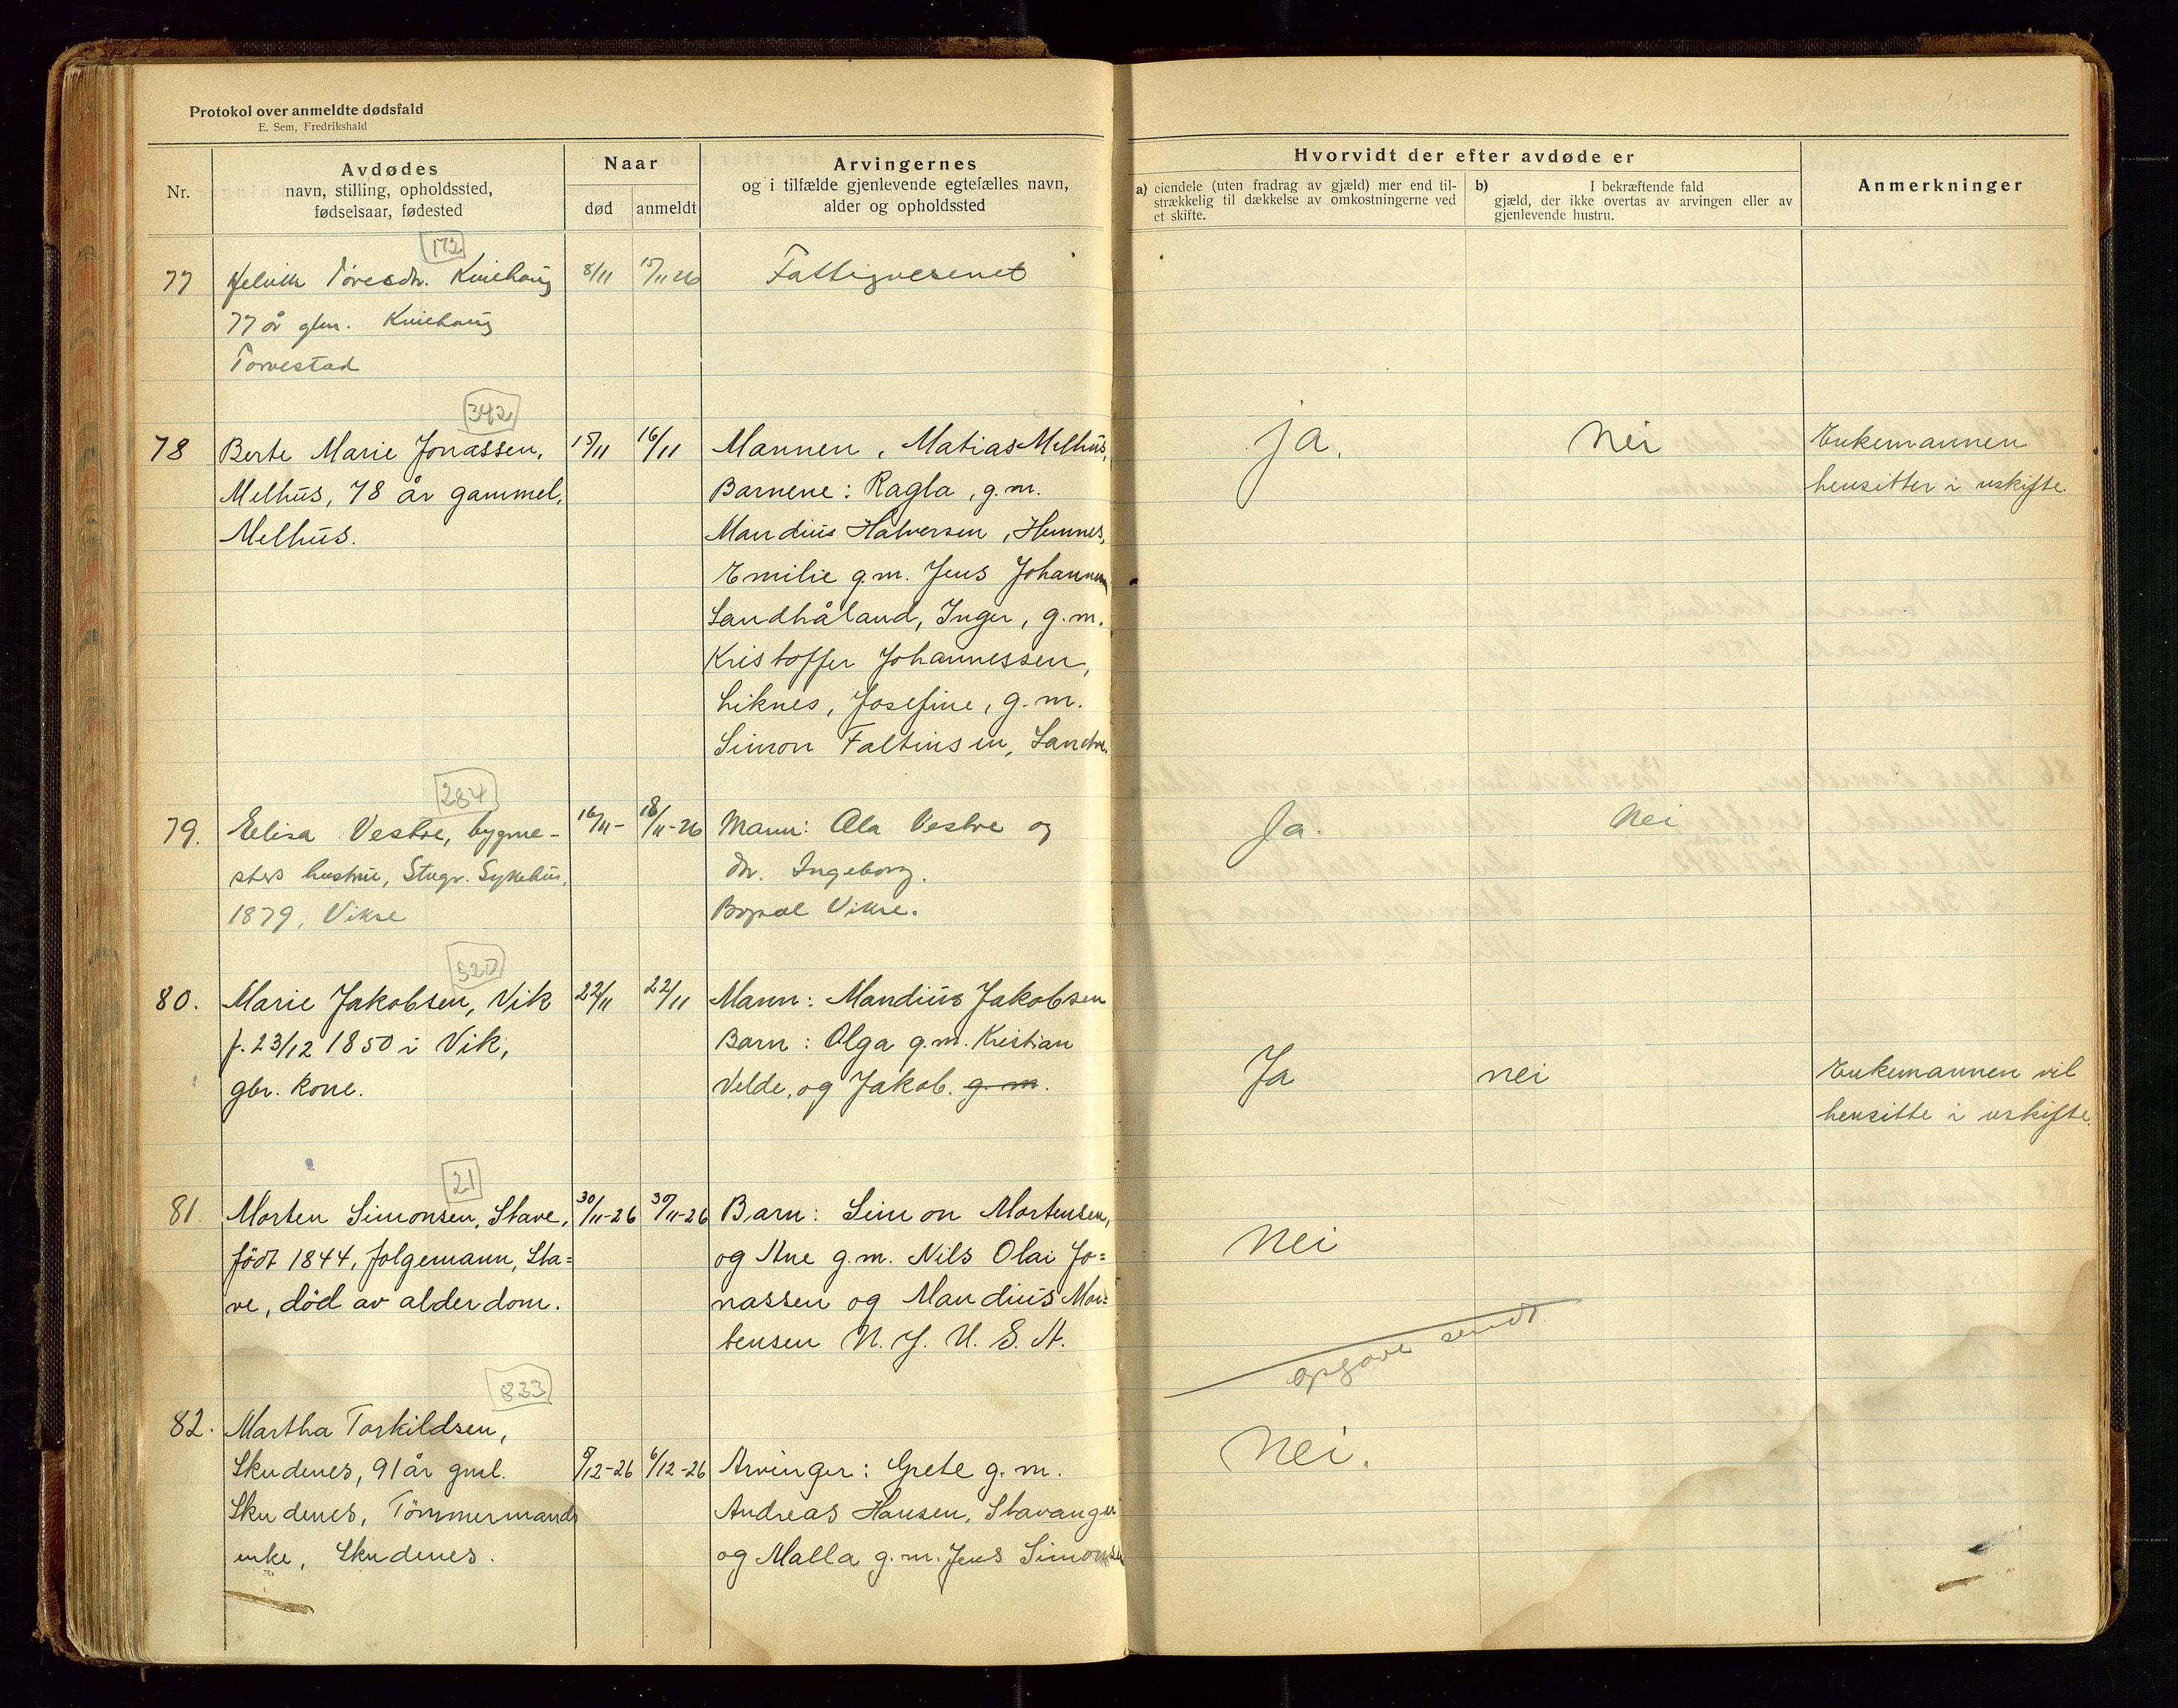 Protokol over anmeldte dødsfald
E. Sem, Fredrikshald
Nr.
Avdødes
navn, stilling, opholdssted,
fødselsaar, fødested
Naar
død
anmeldt
Arvingernes
og i tilfælde gjenlevende egtefælles navn,
alder og opholdssted
Hvorvidt der efter avdøde er
a) eiendele (uten fradrag av gjæld) mer end til-
strækkelig til dækkelse av omkostningerne ved
et skifte.
b) I bekræftende fald
gjæld, der ikke overtas av arvingen eller av
gjenlevende hustru.
Anmerkninger
172
77 Toresdr. Kvilhaug 8/11 15/11 26 Fattigvesenet
77 år glm. Kvilhaug
Torvestad
342
78 Berte Marie Jonassen, 15/11 16/11 Mannen, Matias Melhus, ja. nei Enkemannen
Melhus, 78 år gammel, Barnene: Ragla, g.m. hensitter i uskifte.
Melhus. Mandius Halversen, Hemnes,
Emilie g.m. Jens Johannesen
Sandhåland, Inger, g.m.
Kristoffer Johannessen,
Liknes, Josefine, g.m.
Simon Faltinsen, Sandve.
284
79. Elisa Vestre, bygme- 16/11- 18/11-26 Mann: Ola Vestre og Ja. Nei
sters hustru, Stvgr. Sykehus, dr. Ingeborg.
1879, Vikse Bopæl Vikse.
520
80. Marie Jakobsen, Vik 22/11 22/11 Mann: Mandius Jakobsen
f. 23/12 1850 i Vik, Barn: Olga g.m. Kristian
gbr. kone. Velde, og Jakob. g.m. Ja nei Enkemannen vil
hensitte i uskifte.
21
81. Morten Simonsen, Stave, 30/11-26 30/11-26 Barn: Simon Mortensen,
født 1844, folgemann, Sta= og Ane g.m. Nils Olai Jo= Nei
ve, död av alderdom. nassen og Mandius Mor=
tensen N. J. U. S. A.
opgave sendt
833
82. Martha Torkildsen, Nei.
Skudenes, 91 år gml. 5/12-26 6/12-26 Arvinger: Grete g.m.
Skudenes, Tömmermands Andreas Hansen, Stavanger
enke, Skudenes. og Malla g.m. Jens Simonsen